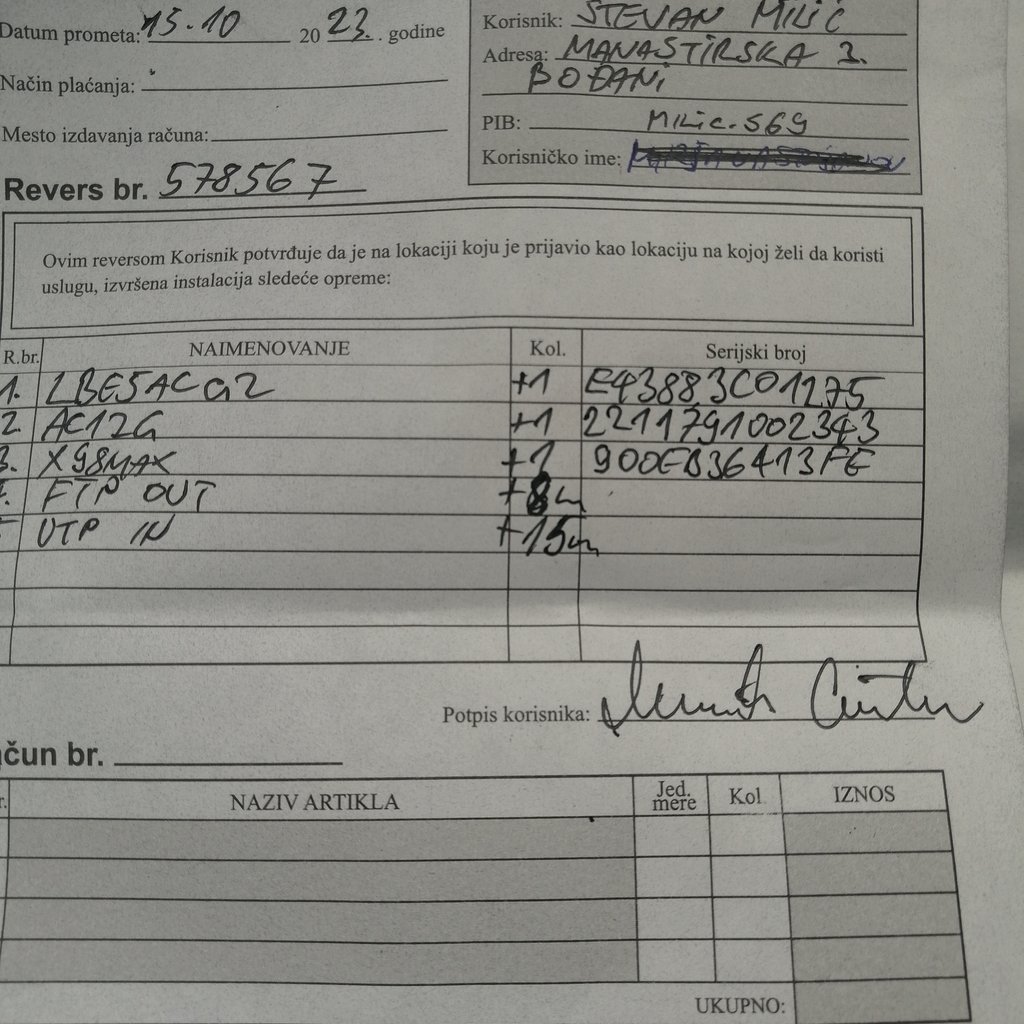 Datum prometa: 15.10 2023. godine
Način plaćanja:
Mesto izdavanja računa:
Revers br. 578567
Korisnik: STEVAN MILIĆ
Adresa: MANASTIRSKA 3.
BOĐANI
PIB: MILIC.569
Korisničko ime:
Ovim reversom Korisnik potvrđuje da je na lokaciji koju je prijavio kao lokaciju na kojoj želi da koristi
uslugu, izvršena instalacija sledeće opreme:
R.br. NAIMENOVANJE Kol. Serijski broj
1. LBE5ACG2 +1 E43883C01275
2. AC12G +1 22117791002343
3. X98MAX +1 900EB36413FE
FTP OUT +8m
UTP IN +15m
Potpis korisnika:
čun br.
r. NAZIV ARTIKLA Jed. mere Kol IZNOS
UKUPNO: